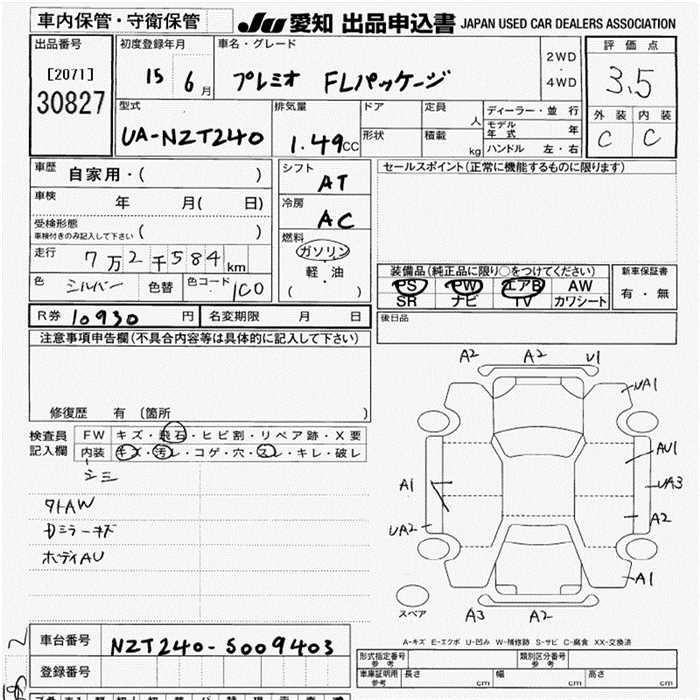 車内保管・守衛保管
JU 愛知 出品申込書 JAPAN USED CAR DEALERS ASSOCIATION
出品番号
[2071]
30827
初度登録年月
15 6月
車名・グレード
プレミオ FLパッケージ
2WD
・
4WD
評価点
3.5
外装 内装
C C
型式
UA-NZT240
排気量
1.49cc
ドア
形状
定員
人
積載
kg
ディーラー・並行
モデル年式 年
ハンドル 左・右
車歴 自家用・( )
車検 年 月( 日)
受検形態
車検付きのみ記入して下さい ( )
走行 7万2千584km
色 シルバー 色替 色コード 1C0
シフト
AT
冷房
AC
燃料
ガソリン
軽・油
( )
セールスポイント(正常に機能するものに限ります)
装備品(純正品に限り○をつけてください)
PS PW エアB AW
SR ナビ TV カワシート
新車保証書
有・無
後日品
R券 10930 円 名変期限 月 日
注意事項申告欄(不具合内容等は具体的に記入して下さい)
修復歴 有 (箇所 )
検査員
記入欄
FW キズ・飛石・ヒビ割・リペア跡・X要
内装 キズ・汚レ・コゲ・穴・スレ・キレ・破レ
シミ
タトAW
カミラーキズ
ホディAU
A2 A2 U1
UA1
AU1
A1 UA3
UA2 A2
A1
スペア A3 A2
A-キズ E-エクボ U-凹み W-補修跡 S-サビ C-腐食 XX-交換済
車台番号 NZT240-5009403
登録番号
形式指定番号
参考
類別区分番号
参考
車庫証明用
参考
長さ cm 幅 cm 高さ cm